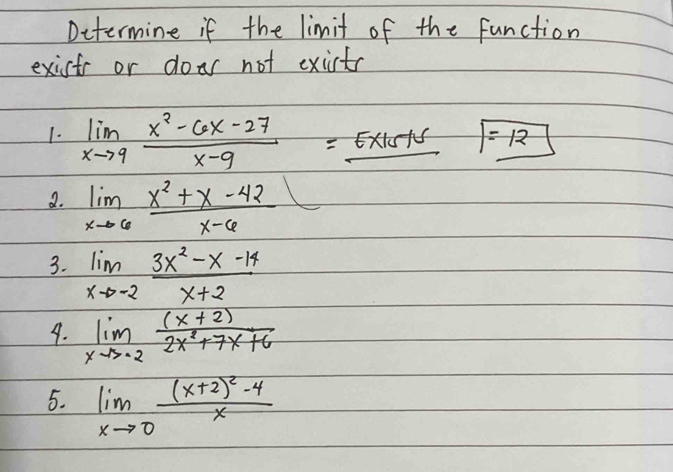 Determine if the limit of the function
exists or does not exists
1. lim x→9 x² - 6x - 27 / x-9 = Exists = 12
2. lim x→6 x² + x - 42 / x-6
3. lim x→-2 3x² - x - 14 / x+2
4. lim x→-2 (x+2) / 2x²+7x+6
5. lim x→0 (x+2)² - 4 / x